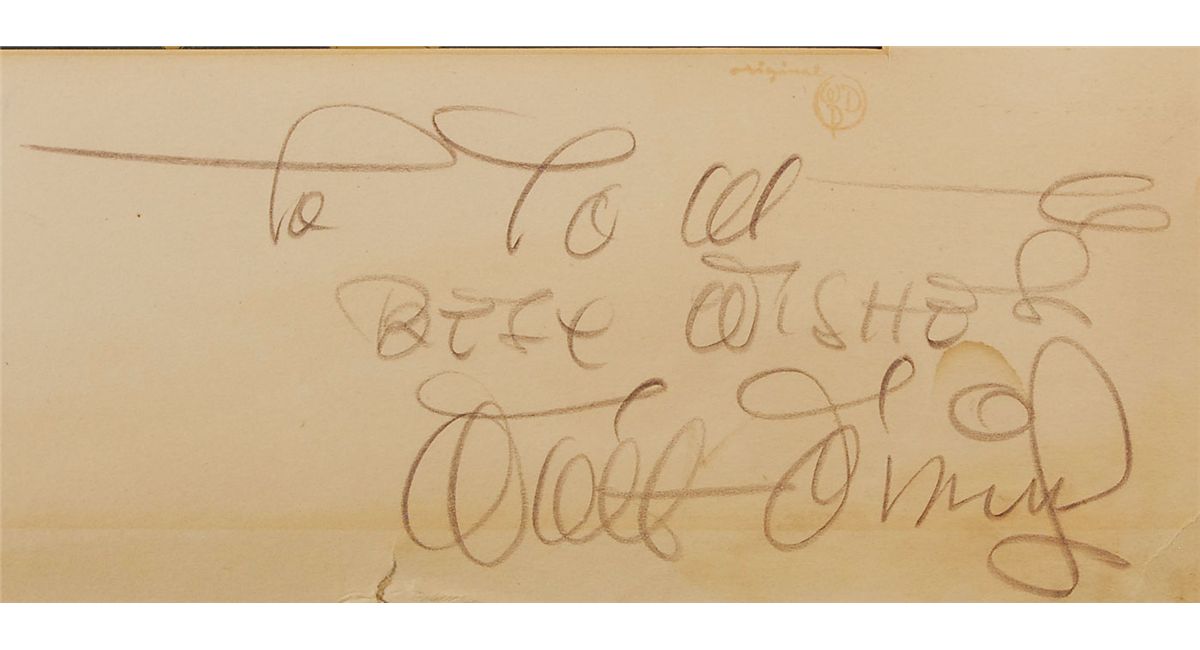 original
WDP
To Tom
BEST WISHES
Walt Disney